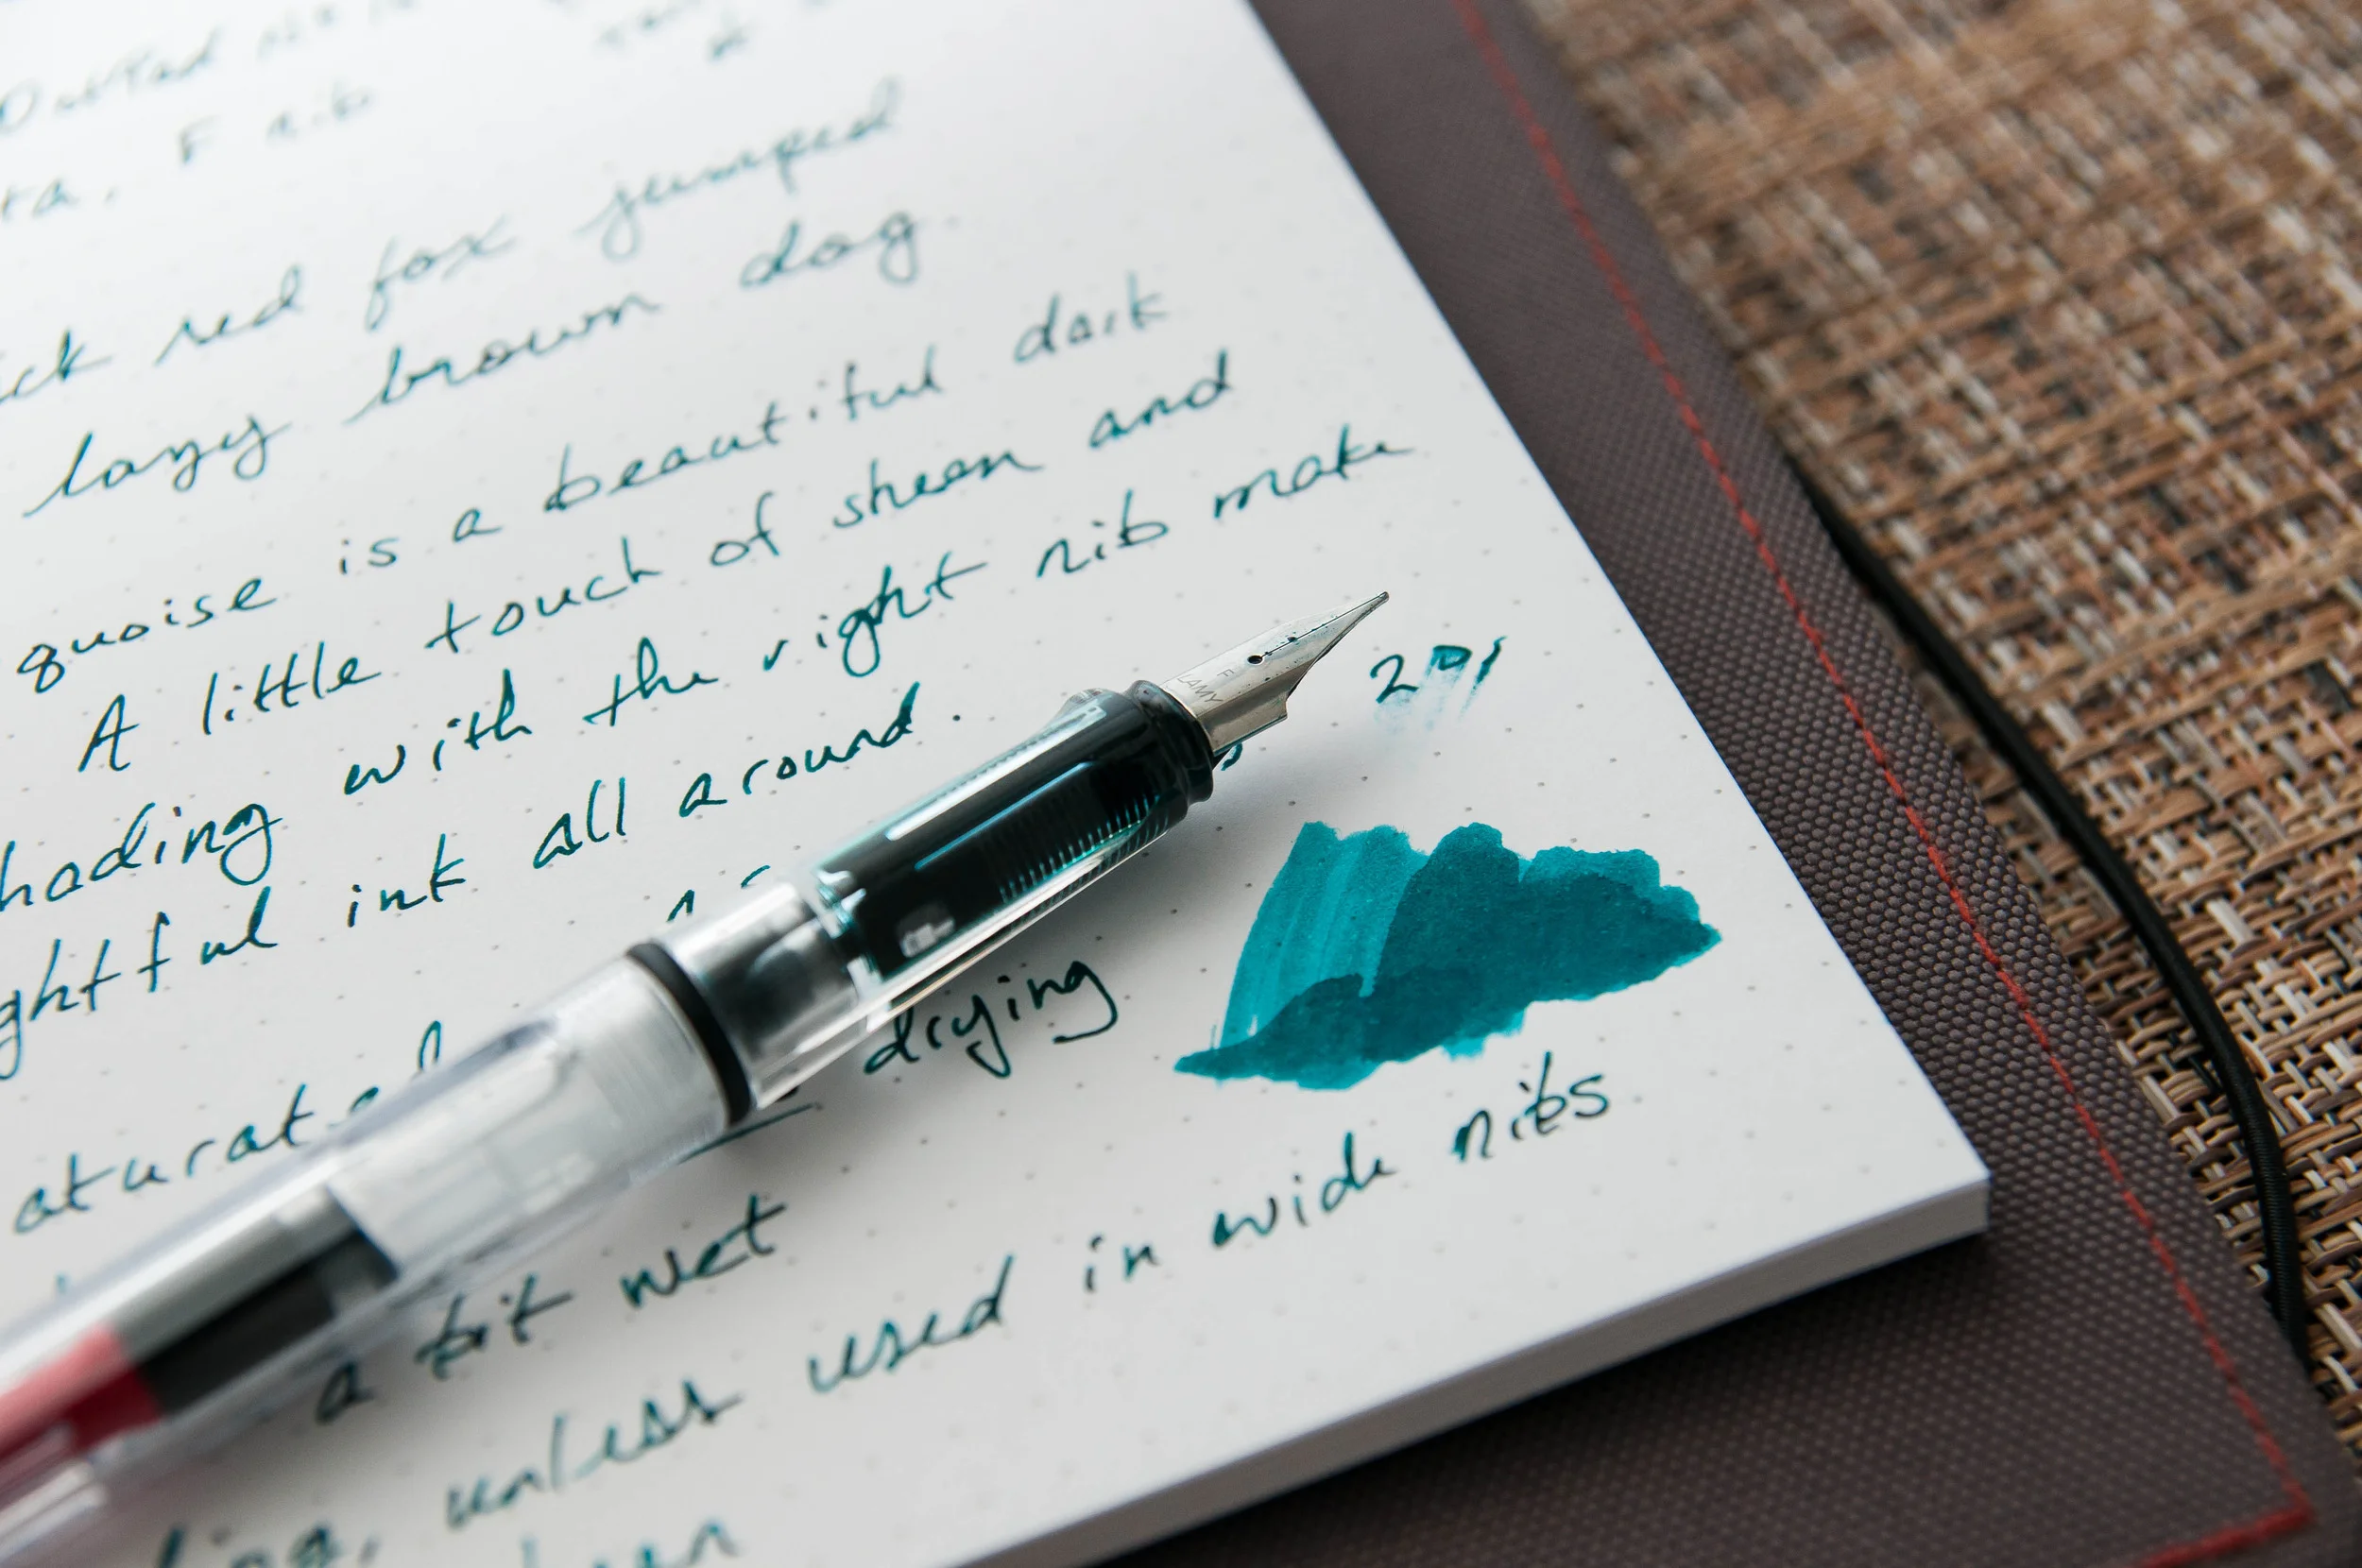 Dotted
ta, F nib
ick red fox jumped
lazy brown dog.
quoise is a beautiful dark
A little touch of sheen and
hading with the right nib make
ghtful ink all around.
LAMY
F
drying
a bit wet
unless used in wide nibs